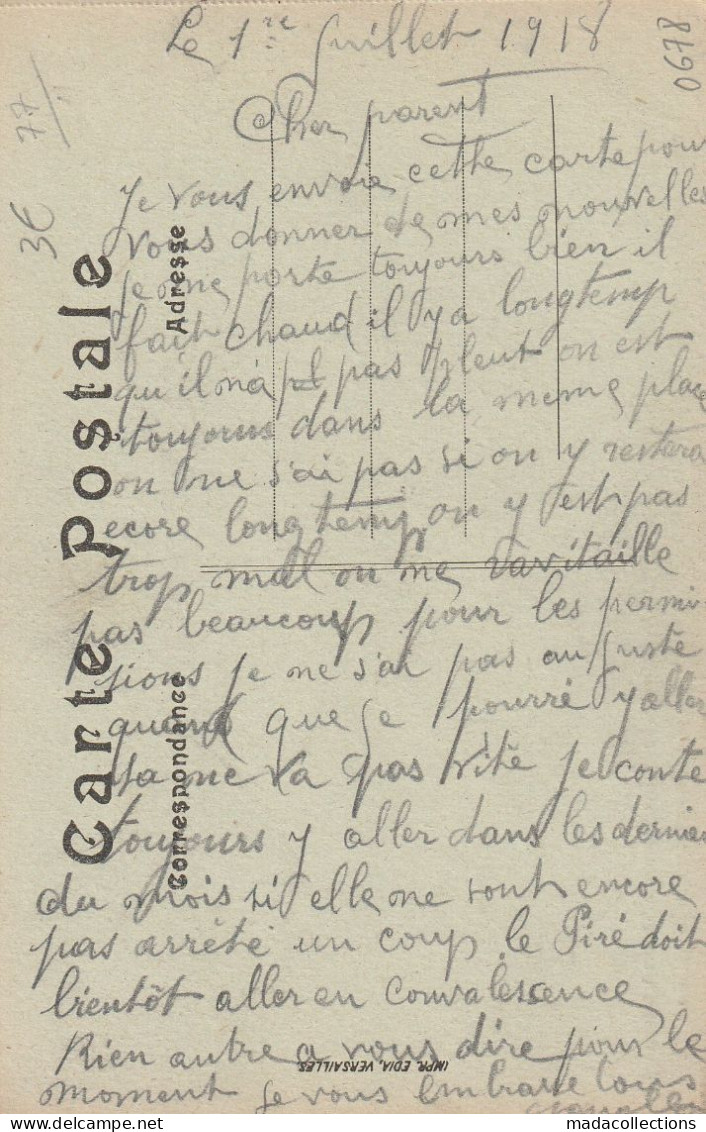 Le 1re Juillet 1918
0678
77
3€
Cher parent
Je vous envoie cette carte pour
vous donner de mes nouvelles
je me porte toujours bien il
fait chaud il y a longtemp
qu'il n'a pas pleut on est
toujours dans la meme place
on ne s'ai pas si on y restera
ecore longtemp on y est pas
trop mal on ne ravitaille
pas beaucoup pour les permi-
sions je ne s'ai pas au juste
quand que je pourré y aller
sa ne va pas vite je conte
toujours y aller dans les dernier
du mois si elle ne sont encore
pas arrêté un coup le Piré doit
bientôt aller en convalescence
Rien autre a vous dire pour le
moment je vous embrasse tous
Carte Postale
Correspondance
Adresse
IMPR. EDIA, VERSAILLES
www.madacollections.com